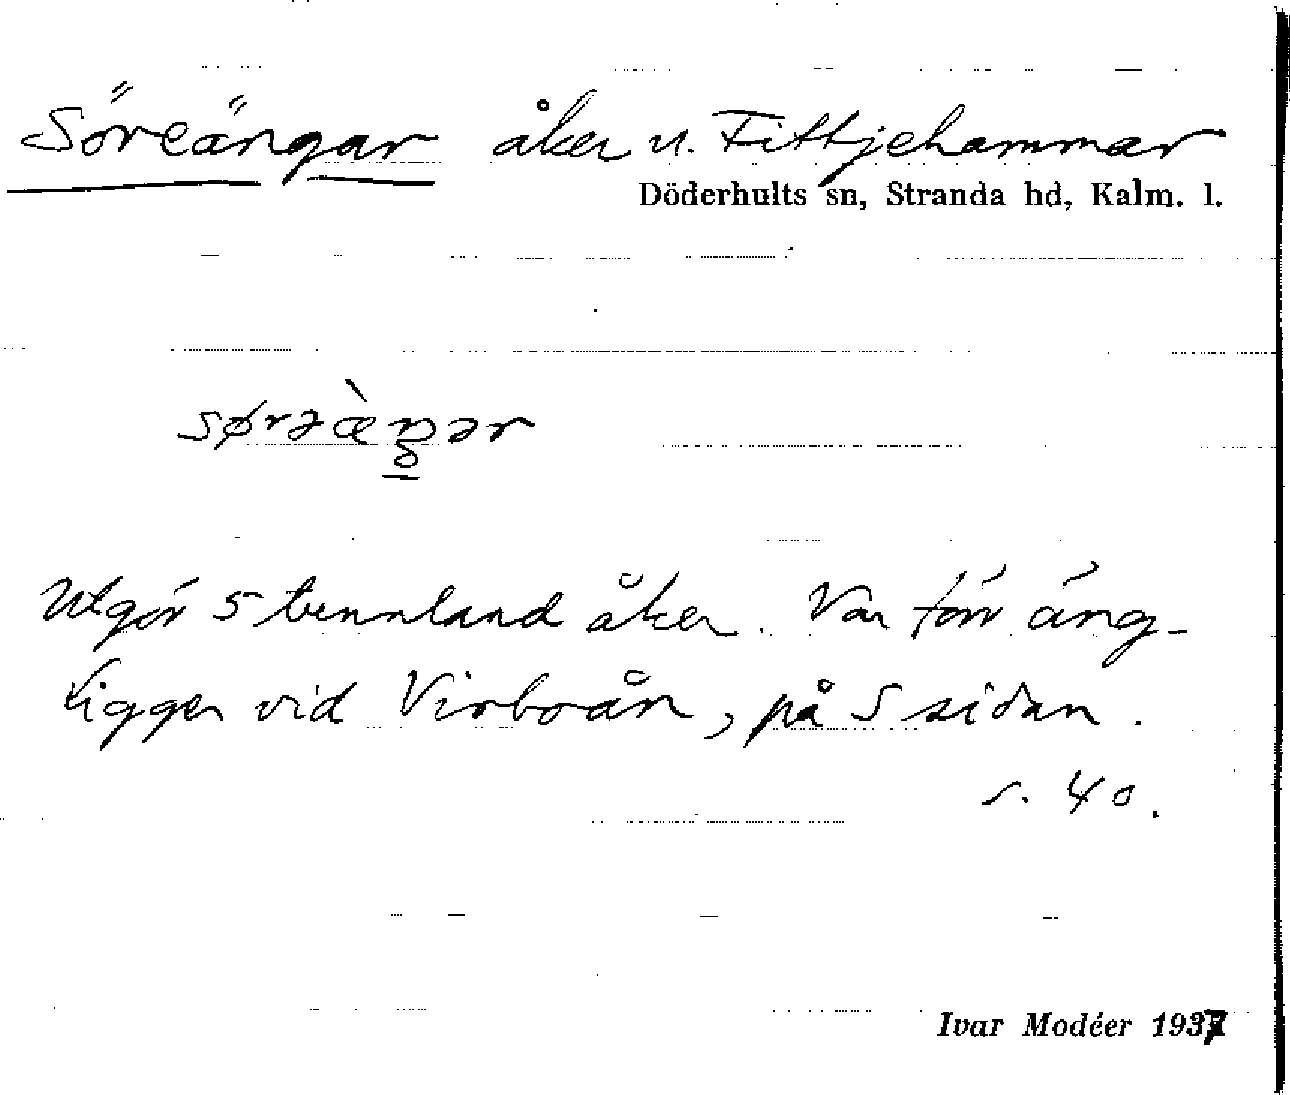 Söreängar åker u. Fittjehammar
Döderhults sn, Stranda hd, Kalm. l.
Utgör 5 tunnland åker. Var förr äng.
Ligger vid Virboån, på S sidan.
s. 40.
Ivar Modéer 1937